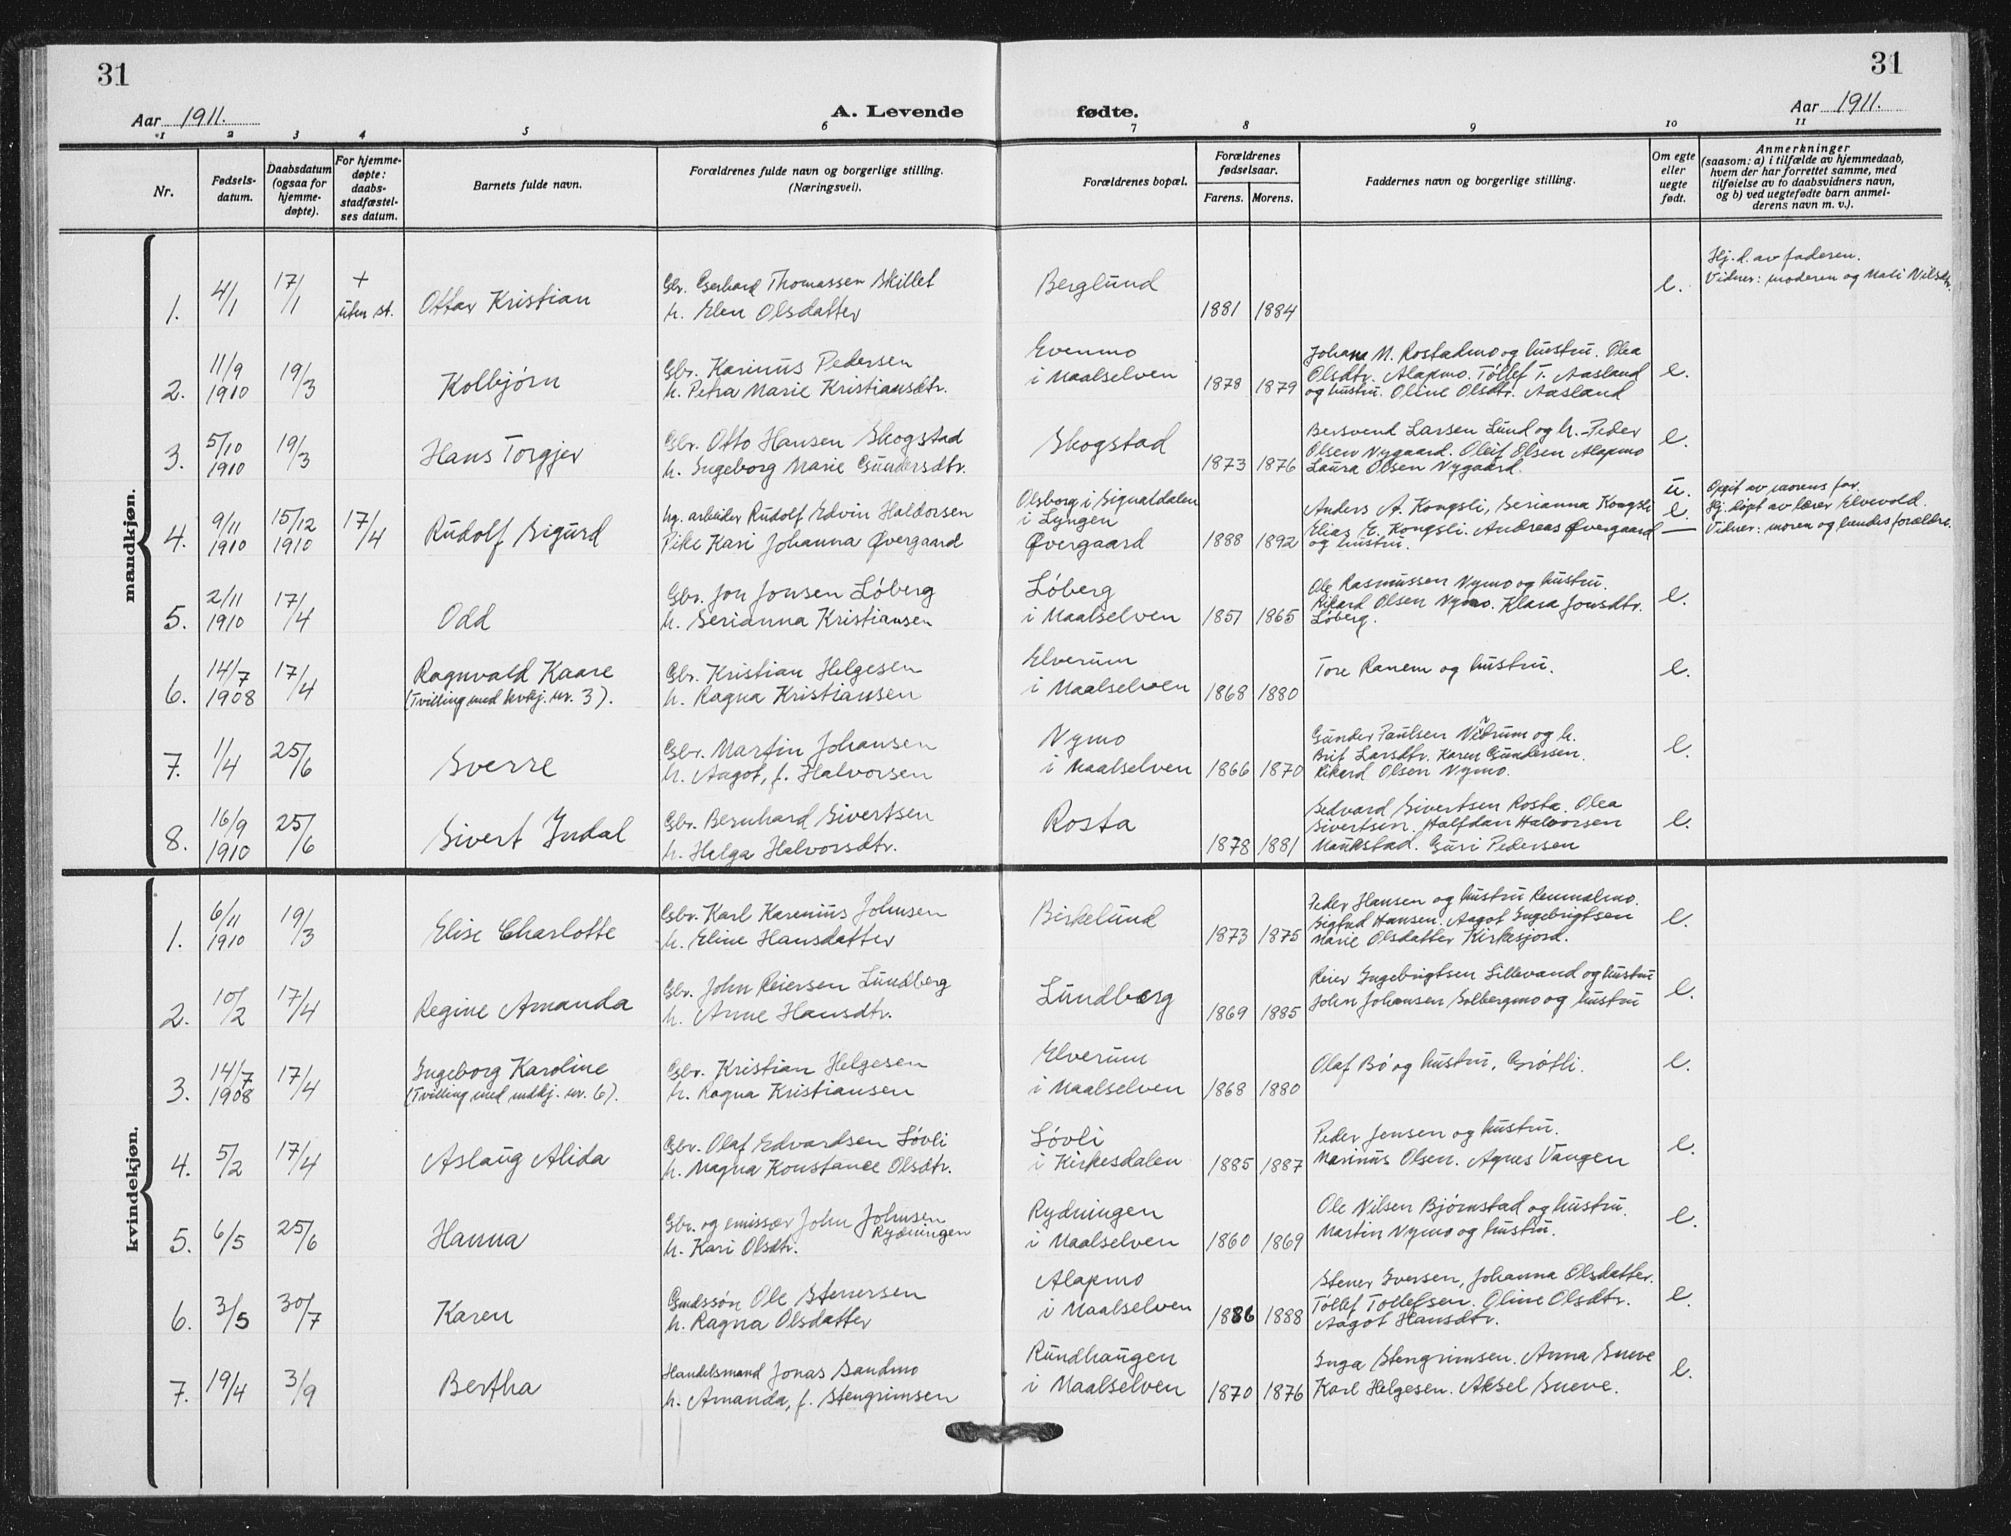 31
31
Aar 1911.
A. Levende fødte.
Aar 1911.
1 2 3 4 5 6 7 8 9 10 11
Nr.
Fødsels-
datum.
Daabsdatum
(ogsaa for
hjemme-
døpte).
For hjemme-
døpte:
daabs-
stadfæstel-
ses datum.
Barnets fulde navn.
Forældrenes fulde navn og borgerlige stilling.
(Næringsvei).
Forældrenes bopæl.
Forældrenes
fødselsaar.
Farens. Morens.
Faddernes navn og borgerlige stilling.
Om egte
eller
uegte
født.
Anmerkninger
(saasom: a) i tilfælde av hjemmedaab,
hvem der har forrettet samme, med
tilføielse av to daabsvidners navn,
og b) ved uegtefødte barn anmel-
derens navn m. v.).
mandkjøn.
1. 4/1 17/1 + uten st. Ottar Kristian
Gbr. Gerhard Thomassen Skillet
h. Elen Olsdatter
Berglund
1881 1884
e.
Hj. d. av faderen.
Vidner: moderen og Mali Nilsdtr.
2. 11/9 1910 19/3 Kolbjørn
Gbr. Karinus Pedersen
h. Petra Marie Kristiansdtr.
Evenmo
i Maalselven
1878 1879
Johan M. Rostadmo og hustru. Olea
Olsdtr. Alapmo. Tollef T. Aasland
og hustru. Oline Olsdtr. Aasland
e.
3. 5/10 1910 19/3 Hans Torgjer
Gbr. Otto Hansen Skogstad
h. Ingeborg Marie Gundersdtr.
Skogstad
1873 1876
Bersvend Larsen Lund og h. Peder
Olsen Nygaard. Oleif Olsen Alapmo
Laura Olsen Nygaard.
e.
4. 9/11 1910 15/12 1910 17/4 Rudolf Sigurd
Ug. arbeider Rudolf Edvin Haldorsen
Pike Kari Johanna Øvergaard
Olsborg i Signaldalen
i Lyngen
Øvergaard
1888 1892
Anders A. Kongsli, Serianna Kongsli
Elias E. Kongsli. Andreas Øvergaard
og hustru.
u.
e.
—
Opgit av morens far.
Hj. døpt av lærer Elvevold.
Vidner: moren og hendes forældre.
5. 2/11 1910 17/4 Odd
Gbr. Jon Jonsen Løberg
h. Serianna Kristiansen
Løberg
i Maalselven
1857 1865
Ole Rasmussen Nymo og hustru.
Rikard Olsen Nymo. Klara Jonsdtr.
Løberg.
e.
6. 14/7 1908 17/4 Ragnvald Kaare
(Tvilling med kvkj. nr. 3).
Gbr. Kristian Helgesen
h. Ragna Kristiansen
Elverum
i Maalselven
1868 1880
Tore Ranem og hustru.
e.
7. 11/4 25/6 Sverre
Gbr. Martin Johansen
h. Aagot, f. Halvorsen
Nymo
i Maalselven
1866 1870
Gunder Paulsen og h.
Brit Larsdtr. Karen Gundersen.
Rikard Olsen Nymo.
e.
8. 16/9 1910 25/6 Sivert Indal
Gbr. Bernhard Sivertsen
h. Helga Halvorsdtr.
Rosta
1878 1881
Sedvard Sivertsen Rosta. Olea
Sivertsen. Halfdan Halvorsen
Maukstad. Guri Pedersen
e.
kvindekjøn.
1. 6/11 1910 19/3 Elise Charlotte
Gbr. Karl Karenius Johnsen
h. Eline Hansdatter
Birkelund
1873 1875
Peder Hansen og hustru Renmalmo.
Sigfred Hansen. Aagot Ingebrigtsen
Marie Olsdatter Kirkesjord.
e.
2. 10/2 17/4 Regine Amanda
Gbr. John Reiersen Lundberg
h. Anne Hansdtr.
Lundberg
1869 1885
Reier Ingebrigtsen Lillevand og hustru
John Johansen Solbergmo og hustru
e.
3. 14/7 1908 17/4 Ingeborg Karoline
(Tvilling med mdkj. nr. 6).
Gbr. Kristian Helgesen
h. Ragna Kristiansen
Elverum
i Maalselven
1868 1880
Olaf Bö og hustru, Grötli.
e.
4. 5/2 17/4 Aslaug Alida
Gbr. Olaf Edvardsen Løvli
h. Magna Konstance Olsdtr.
Løvli
i Kirkesdalen
1885 1887
Peder Jensen og hustru.
Marinus Olsen. Agnes Vangen
e.
5. 6/5 25/6 Hanna
Gbr. og emissær John Johnsen
Rydningen
h. Kari Olsdtr.
Rydningen
i Maalselven
1860 1869
Ole Nilsen Bjørnstad og hustru.
Martin Nymo og hustru.
e.
6. 3/5 30/7 Karen
Gmdssøn Ole Stenersen
h. Ragna Olsdatter
Alapmo
i Maalselven
1886 1888
Stener Iversen, Johanna Olsdatter.
Tollef Tollefsen. Oline Olsdtr.
Aagot Hansdtr.
e.
7. 19/4 3/9 Bertha
Handelsmand Jonas Sandmo
h. Amanda, f. Stengrimsen
Rundhaugen
i Maalselven
1870 1876
Inga Stengrimsen. Anna Sneve
Karl Helgesen. Aksel Sneve.
e.